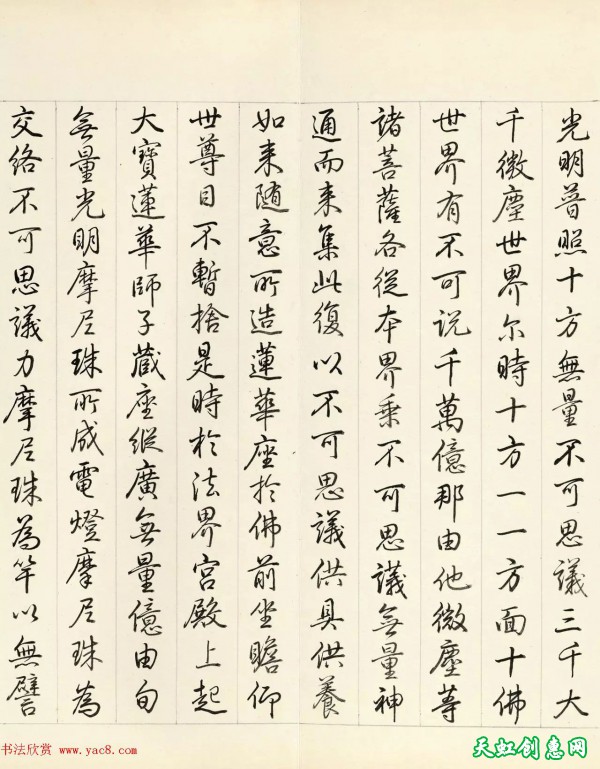 光明普照十方無量不可思議三千大
千微塵世界尒時十方一一方面十佛
世界有不可説千萬億那由他微塵等
諸菩薩各從本界乗不可思議無量神
通而来集此復以不可思議供具供養
如来随意所造蓮華座於佛前坐瞻仰
世尊目不暫捨是時於法界宮殿上起
大寶蓮華師子蔵座縱廣無量億由旬
無量光明摩尼珠所成電燈摩尼珠為
交絡不可思議力摩尼珠為竿以無譬
书法欣赏 www.yac8.com
天虹创惠网